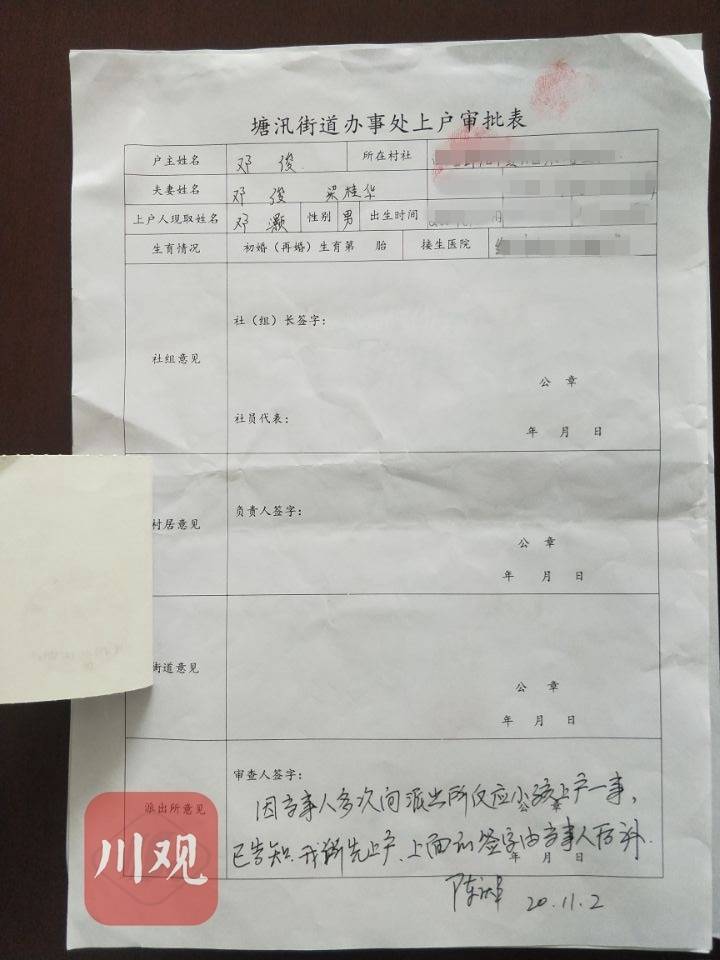 塘汛街道办事处上户审批表
户主姓名 邓 俊 所在村社
夫妻姓名 邓 俊 梁桂华
上户人现取姓名 邓 灏 性别 男 出生时间 月
生育情况 初婚（再婚）生育第 胎 接生医院
社组意见
社（组）长签字：
公 章
社员代表：
年 月 日
村居意见
负责人签字：
公 章
年 月 日
街道意见
公 章
年 月 日
派出所意见
审查人签字：
因当事人多次问派出所反应小孩上户一事，
已告知我所先上户、上面的签字由当事人后补.
年 月 日
20.11.2
川观